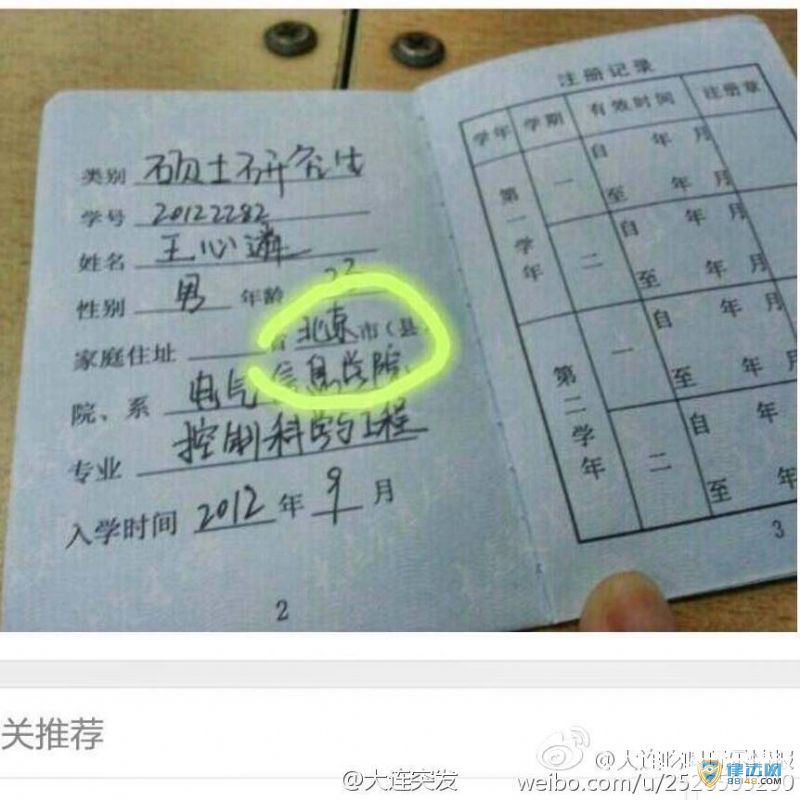 类别 硕士研究生
学号 20122282
姓名 王心遴
性别 男 年龄 22
家庭住址 省 北京 市(县
院、系 电气信息学院
专业 控制科学与工程
入学时间 2012 年 9 月
2
注册记录
学年 学期 有效时间 注册章
第一学年 一 自 年 月
至 年 月
二 自 年 月
至 年 月
第二学年 一 自 年 月
至 年 月
二 自 年 月
至 年
3
关推荐
@大连突发
律法网
88148.com